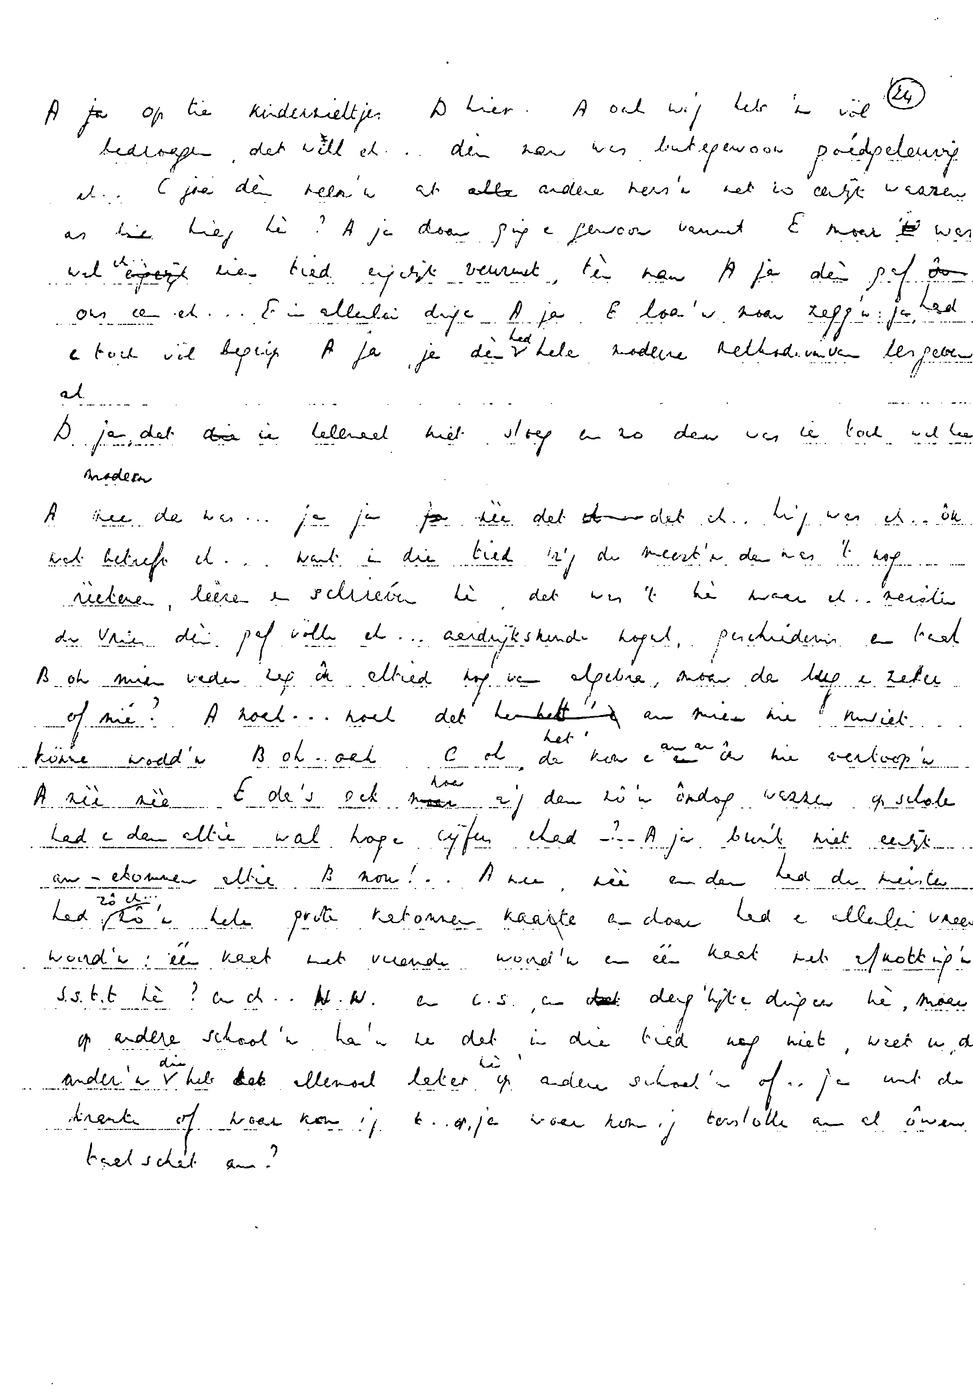 24
A ja op tie kinderzieltjes D hier. A och wij hebt 'n völ
bedroagen, det wìll eh... dèn man was buitegewoon goédgeleuvig
eh... C joa dèn neem'n at alle andere mens'n net zo eerlijk wassen
as hie hieg hè? A ja doar ging e gewoon vanuut E moar ië was
wal eh eigenlijk zien tied eigelijk veuruut, tèn man A ja dèn gaf
ons en eh... E in allerlei dinge A ja E loa'w moar zegg'n: ja, had
e toch völ begrip A ja, ja dèn had hele moderne methodes van lesgeven
al
D ja, det die ie helemaol niet sloeg en zo dan was ie toch wal hee
modern
A nee da was... ja ja ja nëe det det eh.. hij was eh.. ôk
wat betreft eh... want in die tied bij de meest'n dan was 't nog
rèèkenen, lèèzen en schrieëven hè, det was 't hè maar eh.. meister
de Vries dèn gaf völle eh... aardrijkskunde nogal, geschiedenis en taal
B oh mien vader zeg ôk altied nog van algebra, moar da leeg e zeker
of nié? A noel... noel det an mien nie kwiet
könne wodd'n B oh.. och C oh, da kon e an ôw nie verkoop'n
A nëë nëë E da's ook hoe a'j dan zô'n ôndog wassen op schole
had e dan altie wal hoge cijfers ehad -?- A ja bunt niet eerlijk
an-ekommen altie B nou!... A nee, nëë en dan had de meister
had zô'n hele grote katonnen kaarte en doar had e allerlei vreem
woord'n: ëën kaat met vreemde woord'n en ëën kaat met afkotting'n
s.s.t.t hè? en eh.. N.W. en c.s. en derg'lijke dingen hè, moar
op andere school'n ha'n ze det in die tied nog niet, weet u, d
ander'n die heb allemoal later hè op andere school'n of.. ja uut de
krante of woar kon ij t.. o, ja woar kon ij tonslotte an al ôwen
taalschat an?